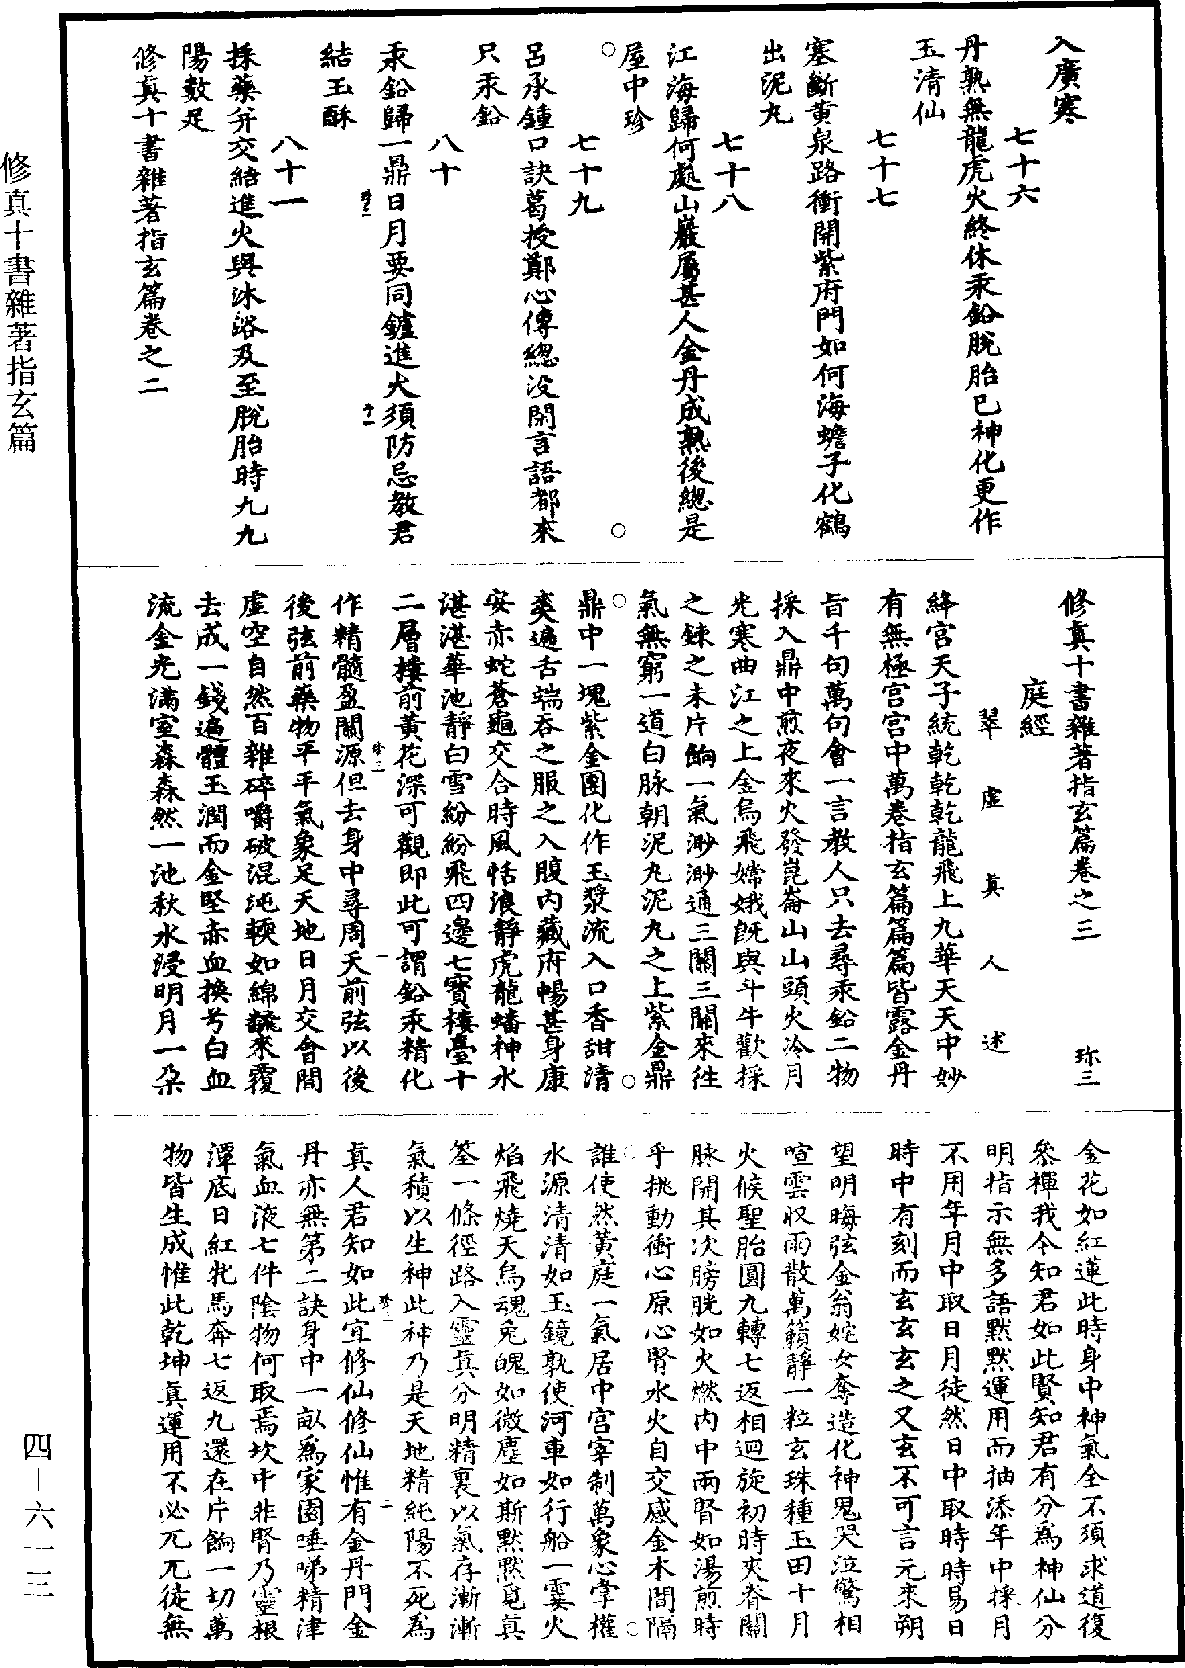 入廣寒
七十六
丹熟無龍虎火終休汞鉛脫胎已神化更作
玉清仙
七十七
塞斷黃泉路衝開紫府門如何海蟾子化鶴
出泥丸
七十八
江海歸何處山巖屬甚人金丹成熟後總是
屋中珍
七十九
呂承鍾口訣葛授鄭心傳總沒閑言語都來
只汞鉛
八十
汞鉛歸一鼎日月要同鑪進火須防忌教君
結玉酥
八十一
採藥并交結進火與沐浴及至脫胎時九九
陽數足
修真十書雜著指玄篇卷之二
修真十書雜著指玄篇卷之三
珎三
庭經
翠虛真人述
絳宮天子統乾乾乾龍飛上九華天天中妙
有無極宮宮中萬卷指玄篇篇篇皆露金丹
旨千句萬句會一言教人只去尋汞鉛二物
採入鼎中煎夜來火發崑崙山山頭火冷月
光寒曲江之上金烏飛嫦娥旣與斗牛歡採
之鍊之未片餉一氣渺渺通三關三關來往
氣無窮一道白脉朝泥丸泥丸之上紫金鼎
鼎中一塊紫金團化作玉漿流入口香甜清
爽遍舌端吞之服之入腹內藏府暢甚身康
安赤蛇蒼龜交合時風恬浪靜虎龍蟠神水
湛湛華池靜白雪紛紛飛四邊七寶樓臺十
二層樓前黃花深可觀即此可謂鉛汞精化
作精髓盈關源但去身中尋周天前弦以後
後弦前藥物平平氣象足天地日月交會間
虛空自然百雜碎嚼破混沌輭如綿虢來覆
去成一錢遍體玉潤而金堅赤血換兮白血
流金光滿室森森然一池秋水浸明月一朶
金花如紅蓮此時身中神氣全不須求道復
參禪我今知君如此賢知君有分爲神仙分
明指示無多語默默運用而抽添年中採月
不用年月中取日月徒然日中取時時易日
時中有刻而玄玄玄之又玄不可言元來朔
望明晦弦金翁姹女奪造化神鬼哭泣驚相
喧雲収雨散萬籟靜一粒玄珠種玉田十月
火候聖胎圓九轉七返相迴旋初時夾脊關
脉開其次膀胱如火燃內中兩腎如湯煎時
乎挑動衝心原心腎水火自交感金木間隔
誰使然黃庭一氣居中宮宰制萬象心掌權
水源清清如玉鏡孰使河車如行船一霎火
焰飛燒天烏魂兎魄如微塵如斯默默覓真
筌一條徑路入靈真分明精裏以氣存漸漸
氣積以生神此神乃是天地精純陽不死爲
真人君知如此宜修仙修仙惟有金丹門金
丹亦無第二訣身中一畝爲家園唾涕精津
氣血液七件陰物何取焉坎中非腎乃靈根
潭底日紅牝馬奔七返九還在片餉一切萬
物皆生成惟此乾坤真運用不必兀兀徒無
修真十書雜著指玄篇
四—六一三